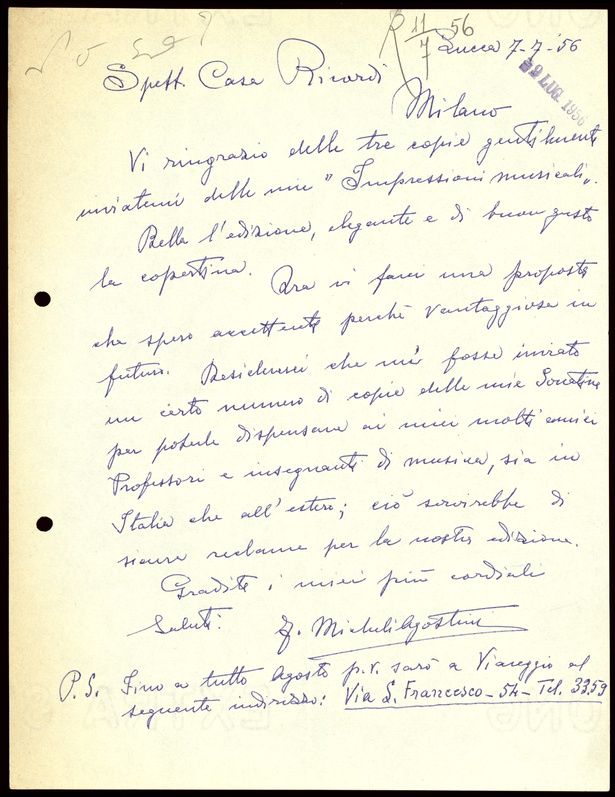 R 11/7 56
Lucca 7-7-56
9 LUG. 1956
Spett. Casa Ricordi
Milano
Vi ringrazio delle tre copie gentilmente
inviatemi delle mie "Impressioni musicali".
Bella l'edizione, elegante e di buon gusto
la copertina. Ora vi farei una proposta
che spero accetterete perchè vantaggiosa in
futuro. Desidererei che mi fosse inviato
un certo numero di copie delle mie Sonatine
per poterle dispensare ai miei molti amici
Professori e insegnanti di musica, sia in
Italia che all'estero; ciò servirebbe di
sicura reclame per la nostra edizione.
Gradite i miei più cordiali
Saluti. G. Micheli Agostini
P.S. Fino a tutto Agosto p.v. sarò a Viareggio al
seguente indirizzo: Via S. Francesco - 54 - Tel. 3359